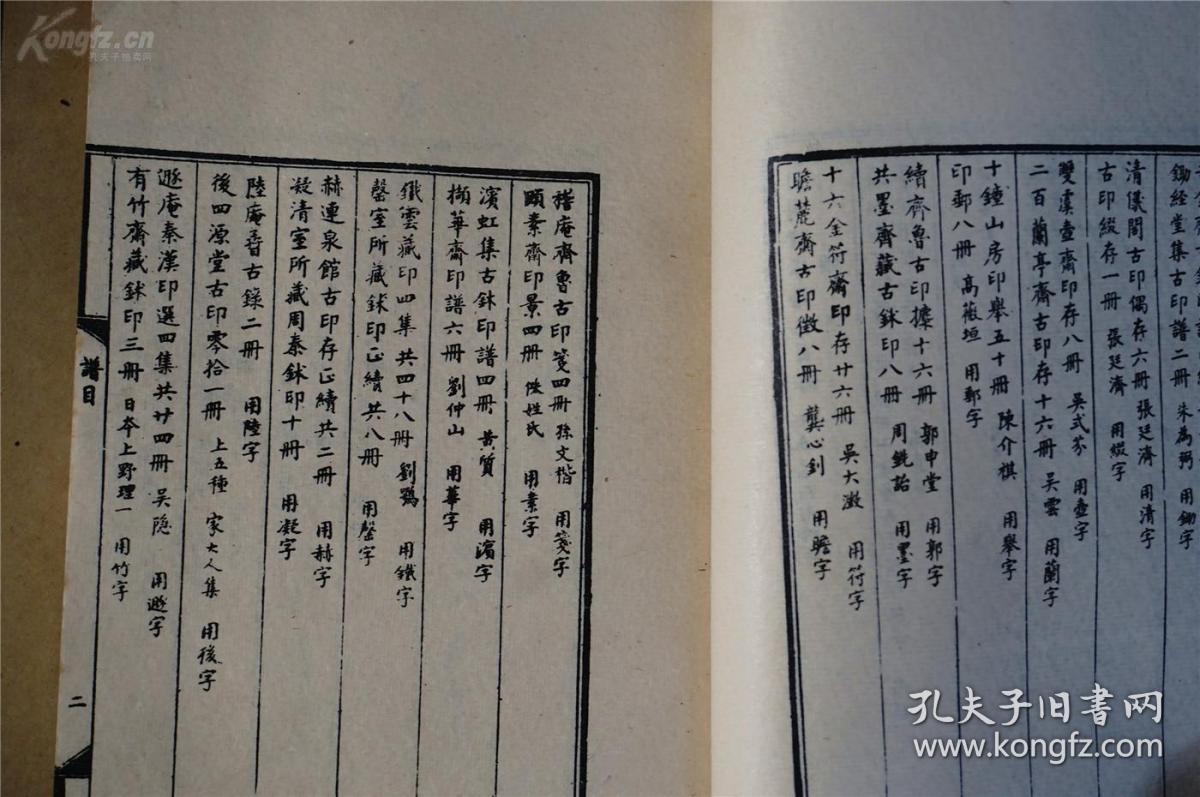 鋤經堂集古印譜二冊 朱為弼 用鋤字
清儀閣古印偶存六冊 張廷濟 用清字
古印綴存一冊 張廷濟 用綴字
雙虞壺齋印存八冊 吳式芬 用壺字
二百蘭亭齋古印存十六冊 吳雲 用蘭字
十鐘山房印舉五十冊 陳介祺 用舉字
印郵八冊 高薇垣 用郵字
續齊魯古印攈十六冊 郭申堂 用郭字
共墨齋藏古鉥印八冊 周銑詒 用墨字
十六金符齋印存廿六冊 吳大澂 用符字
瞻麓齋古印徵八冊 龔心釗 用瞻字
稽庵齊魯古印箋四冊 孫文楷 用箋字
頤素齋印景四冊 佚姓氏 用素字
濱虹集古鉥印譜四冊 黃質 用濱字
擷華齋印譜六冊 劉仲山 用華字
鐵雲藏印四集共四十八冊 劉鶚 用鐵字
罄室所藏鉥印正續共八冊 用罄字
赫連泉館古印存正續共二冊 用赫字
凝清室所藏周秦鉥印十冊 用凝字
陸庵㝷古錄二冊 用陸字
後四源堂古印零拾一冊 上五種 家大人集 用後字
遯庵秦漢印選四集共廿四冊 吳隱 用遯字
有竹齋藏鉥印三冊 日本上野理一 用竹字
譜目
二
Kongfz.cn
孔夫子拍卖网
孔夫子旧书网
www.kongfz.com